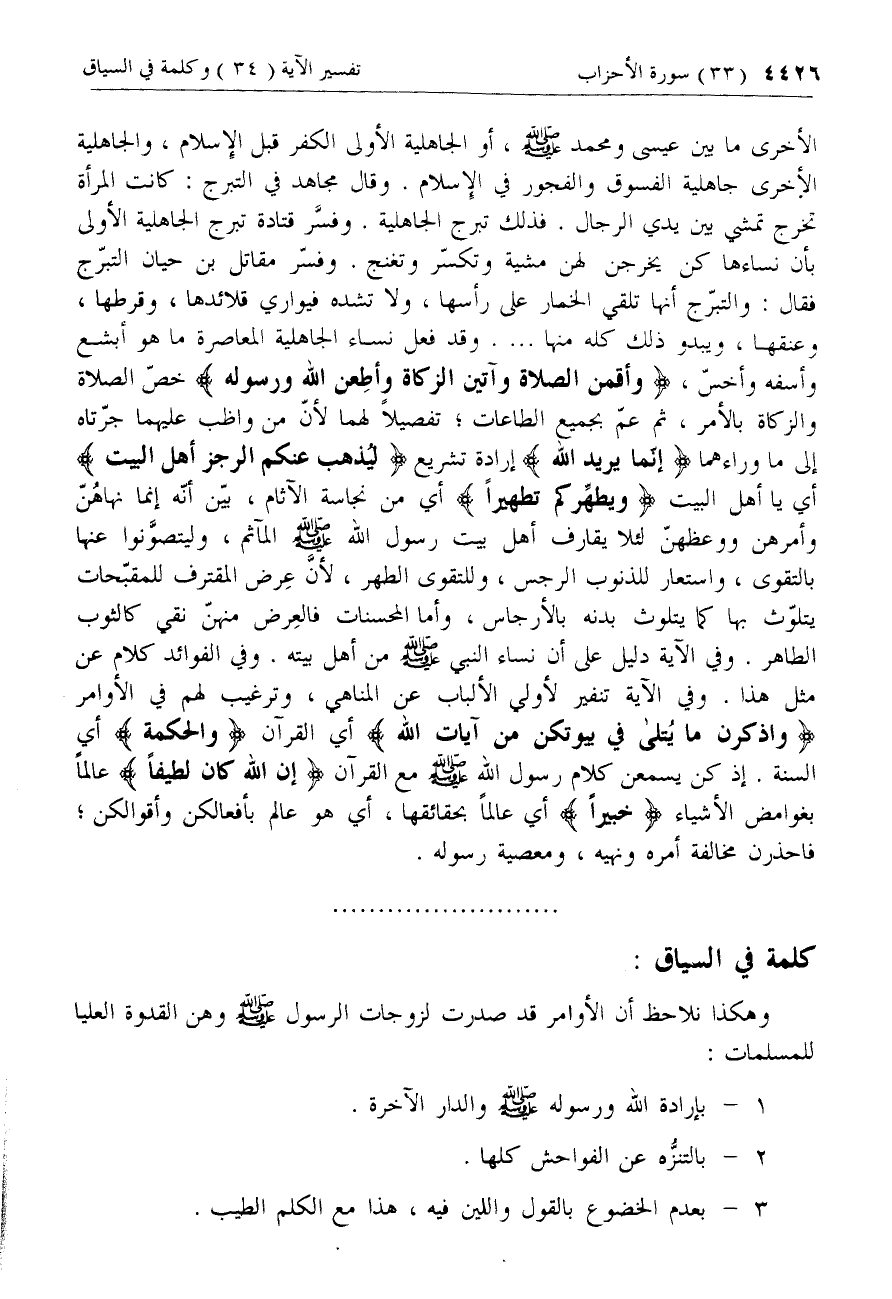 ٤٤٢٦ (٣٣) سورة الأحزاب تفسير الآية (٣٤) وكلمة في السياق
الأخرى ما بين عيسى ومحمد ﷺ ، أو الجاهلية الأولى الكفر قبل الإسلام ، والجاهلية
الإخرى جاهلية الفسوق والفجور في الإسلام . وقال مجاهد في التبرج : كانت المرأة
تخرج تمشي بين يدي الرجال . فذلك تبرج الجاهلية . وفسَّر قتادة تبرج الجاهلية الأولى
بأن نساءها كن يخرجن لهن مشية وتكسّر وتغنج . وفسّر مقاتل بن حيان التبرّج
فقال : والتبرّج أنها تلقي الخمار على رأسها ، ولا تشده فيواري قلائدها ، وقرطها ،
وعنقهـا ، ويبدو ذلك كله منها ... . وقد فعل نساء الجاهلية المعاصرة ما هو أبشع
وأسفه وأخسّ ، ﴿ وأقمن الصلاة وآتين الزكاة وأطِعن الله ورسوله ﴾ خصّ الصلاة
والزكاة بالأمر ، ثم عمّ بجميع الطاعات ؛ تفصيلاً لهما لأنّ من واظب عليهما جرّتاه
إلى ما وراءهما ﴿ إنّما يريد الله ﴾ إرادة تشريع ﴿ ليُذهب عنكم الرجز أهل البيت ﴾
أي يا أهل البيت ﴿ ويطهِّركم تطهيراً ﴾ أي من نجاسة الآثام ، بيّن أنّه إنما نهاهُنّ
وأمرهن ووعظهنّ لئلا يقارف أهل بيت رسول الله ﷺ المآثم ، وليتصوَّنوا عنها
بالتقوى ، واستعار للذنوب الرجس ، وللتقوى الطهر ، لأنَّ عِرض المقترف للمقبّحات
يتلوّث بها كما يتلوث بدنه بالأرجاس ، وأما المحسنات فالعِرض منهنّ نقي كالثوب
الطاهر . وفي الآية دليل على أن نساء النبي ﷺ من أهل بيته . وفي الفوائد كلام عن
مثل هذا . وفي الآية تنفير لأولي الألباب عن المناهي ، وترغيب لهم في الأوامر
﴿ واذكرن ما يُتلىٰ في بيوتكن من آيات الله ﴾ أي القرآن ﴿ والحكمة ﴾ أي
السنة . إذ كن يسمعن كلام رسول الله ﷺ مع القرآن ﴿ إن الله كان لطيفاً ﴾ عالماً
بغوامض الأشياء ﴿ خبيراً ﴾ أي عالماً بحقائقها ، أي هو عالم بأفعالكن وأقوالكن ؛
فاحذرن مخالفة أمره ونهيه ، ومعصية رسوله .
.........................
كلمة في السياق :
وهكذا نلاحظ أن الأوامر قد صدرت لزوجات الرسول ﷺ وهن القدوة العليا
للمسلمات :
١ – بإرادة الله ورسوله ﷺ والدار الآخرة .
٢ – بالتنزُّه عن الفواحش كلها .
٣ – بعدم الخضوع بالقول واللين فيه ، هذا مع الكلم الطيب .